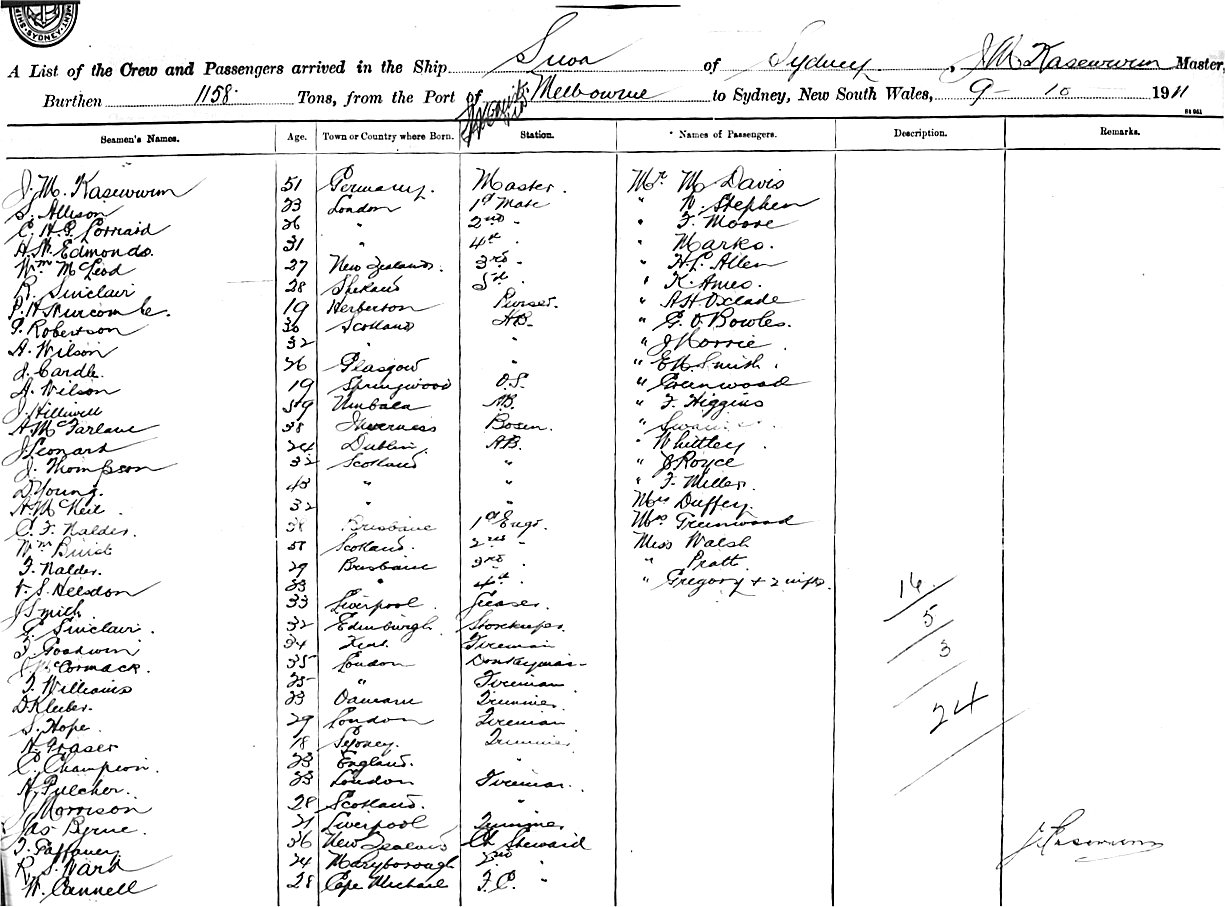 MENT. SHIP
SYDNEY
A List of the Crew and Passengers arrived in the Ship Suva of Sydney, J M Kasewurm Master,
Burthen 1158 Tons, from the Port of Melbourne to Sydney, New South Wales, 9 - 10 1911
Seamen's Names. Age. Town or Country where Born. Station. Names of Passengers. Description. Remarks.
J. M. Kasewurm 51 Germany. Master. Mr. M Davis
S. Allison 33 London 1st Mate " N. Stephen
C. H. P. Lorraid 26 " 2nd " " F. Moore
H. W. Edmonds. 31 " 4th " " Marks.
Wm McLeod 27 New Zealand. 3rd " " H. L. Allen
R. Sinclair 28 5th " " K. Ames.
P. H. Hurcombe. 19 Herberton Purser. " A H Oxlade
G. Robertson 30 Scotland AB. " G. O. Bowles.
A. Wilson 32 " " " J Norrie
J. Cardle. 26 Glasgow " " E W Smith.
A. Wilson 19 Springwood O.S. " Greenwood
J. Hilliwell 59 Umbala AB. " F. Higgins
A McFarlane 38 Inverness Bosen. "
J Leonard 24 Dublin. AB. " Whittley
J. Thompson 32 Scotland " " J Royce
D Young. 43 " " " F. Miller.
A McNeil 32 " " Mrs Duffey.
C. F. Nalder. 38 Brisbane 1st Engr. Mrs Greenwood
Wm Buist 51 Scotland. 2nd " Miss Walsh
F. Nalder. 29 Brisbane 3rd " " Pratt.
S. Helsdon 33 " 4th " " Gregory + 2
J Smith 33 Liverpool Greaser. 16
G. Sinclair. 32 Edinburgh Storekeeper. 5
F. Goodwin 34 Kent Fireman 3
J McCormack. 35 London Donkeyman
F. Williams 25 " Fireman
D Kleiber. 23 Oamaru Trimmer. 24
S. Hope. 29 London Fireman
H. Fraser 18 Sydney. Trimmer
C. Champion. 23 England. "
H. Pulcher. 23 London Fireman.
J Morrison 28 Scotland. "
Jas Byrne. 21 Liverpool Trimmer
T. Gaffaney 36 New Zealand Ch Steward
R. S. Wark 24 Maryborough 2nd "
W. Cannell 28 Cape Michael F. C. "
J. Kasewurm